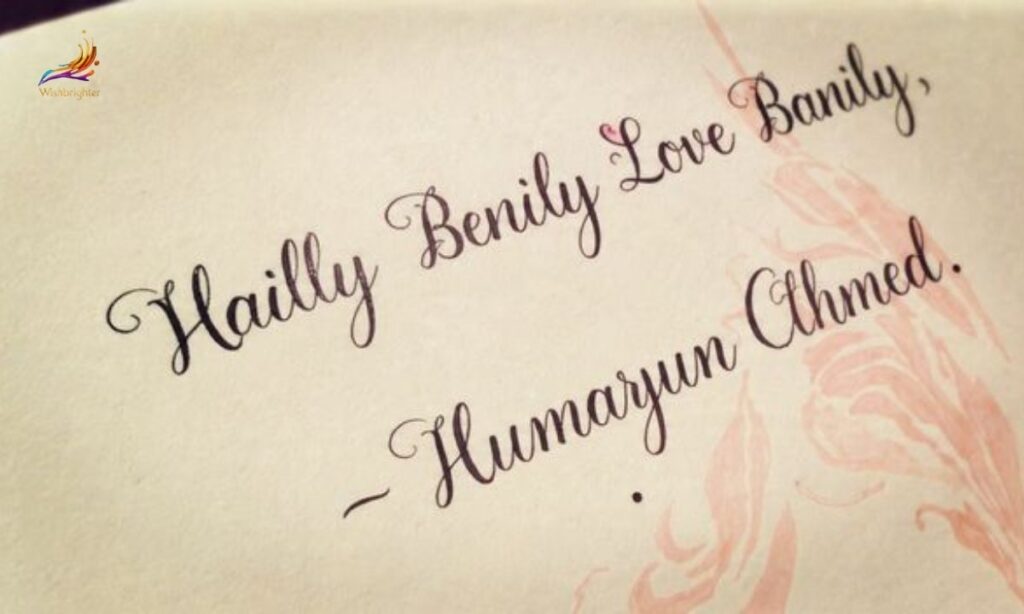 Wishbrighter
Hailly Benily Love Banily,
~ Humaryun Ahmed.